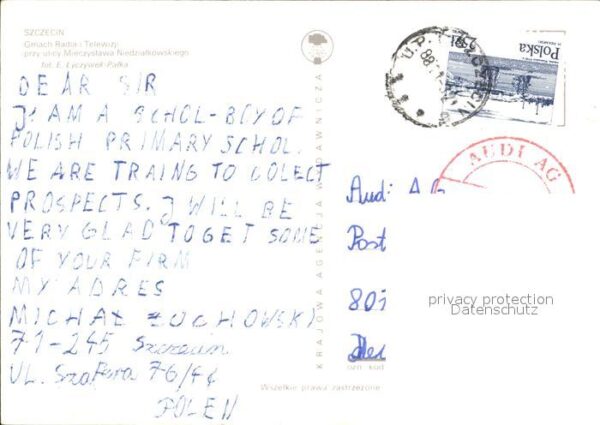 SZCZECIN
Gmach Radia i Telewizji
przy ulicy Mieczysława Niedziałkowskiego
fot. E. Łyczywek-Pałka
DEAR SIR
I AM A SCHOL-BOY OF
POLISH PRIMARY SCHOL.
WE ARE TRAING TO COLECT
PROSPECTS. I WILL BE
VERY GLAD TO GET SOME
OF YOUR FIRM
MY ADRES
MICHAŁ ŻUCHOWSKI
71-245 Szczecin
UL. 76/4
POLEN
KRAJOWA AGENCJA WYDAWNICZA
Wszelkie prawa zastrzeżone
Polska
AUDI AG
Audi AG
Post
privacy protection
Datenschutz
ozn. kod